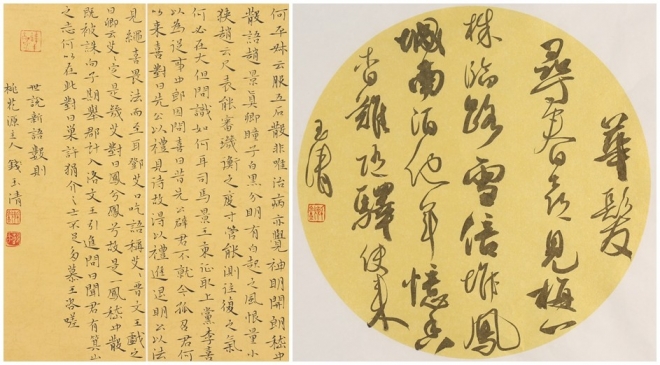 何平叔云服五石散非唯治病亦覺神明開朗嵇中
散語趙景真卿瞳子白黑分明有白起之風恨量小
狹趙云尺表能審璣衡之度寸管能測往復之氣
何必在大但問識如何耳司馬景王東征取上黨李喜
以為從事中郎因問喜曰昔先公辟君不就今孤召君何
以來喜對曰先公以禮見待故得以禮進退明公以法
見繩喜畏法而至耳鄧艾口吃語稱艾〻晉文王戲之
曰卿云艾〻定是幾艾對曰鳳兮鳳兮故是一鳳嵇中散
既被誅向子期舉郡計入洛文王引進問曰聞君有箕山
之志何以在此對曰巢許狷介之士不足多慕王咨嗟
世說新語數則
桃花源主人錢玉清
華髮
尋春喜見梅一
株臨路雪倍堆鳳
城南陌他年憶香
杳難隨驛使來
玉清